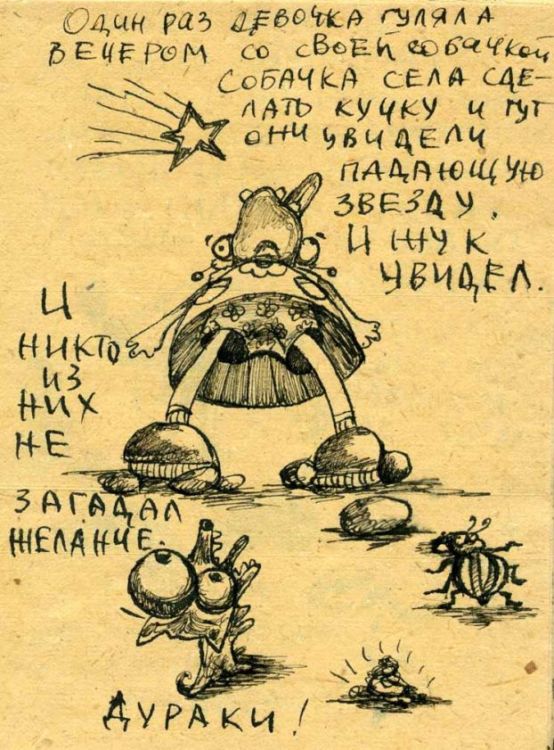 ОДИН РАЗ ДЕВОЧКА ГУЛЯЛА
ВЕЧЕРОМ СО СВОЕЙ СОБАЧКОЙ
СОБАЧКА СЕЛА СДЕ-
ЛАТЬ КУЧКУ И ТУТ
ОНИ УВИДЕЛИ
ПАДАЮЩУЮ
ЗВЕЗДУ.
И ЖУК
УВИДЕЛ.
И
НИКТО
ИЗ
НИХ
НЕ
ЗАГАДАЛ
ЖЕЛАНИЕ.
ДУРАКИ!